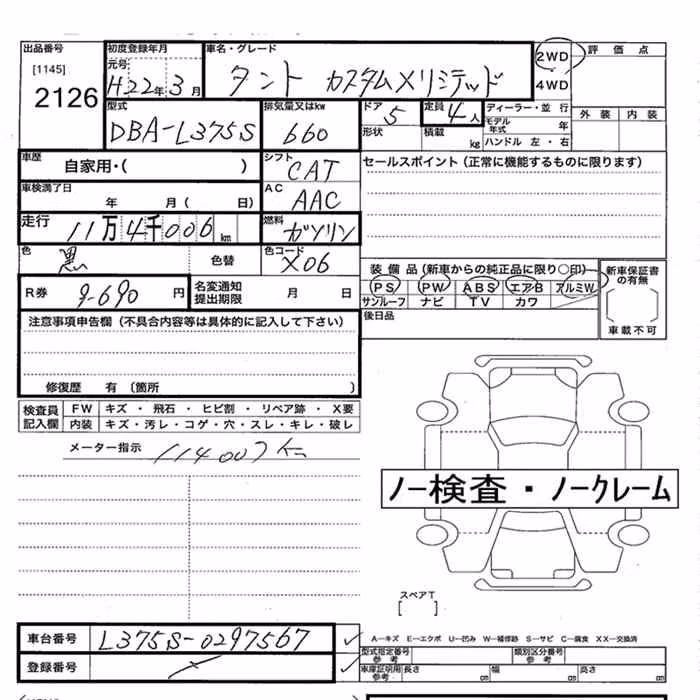 出品番号 初度登録年月 車名・グレード 2WD 評価点
[1145] 元号 H22年3月 タント カスタムXリミテッド 4WD
2126 型式 排気量又はkw ドア 定員 ディーラー・並行 外装 内装
DBA-L375S 660 5 4人 モデル年式 年
形状 積載 kg ハンドル 左・右
車歴 自家用・( ) シフト CAT セールスポイント (正常に機能するものに限ります)
車検満了日 年 月( 日) AC AAC
走行 11万4千006km 燃料 ガソリン
色 黒 色替 色コード X06 装備品 (新車からの純正品に限り○印) 新車保証書の有無
R券 9-690円 名変通知提出期限 月 日 PS PW ABS エアB アルミW
サンルーフ ナビ TV カワ
注意事項申告欄 (不具合内容等は具体的に記入して下さい) 後日品 車載不可
修復歴 有 (箇所 )
検査員記入欄 FW キズ・飛石・ヒビ割・リペア跡・X要
内装 キズ・汚レ・コゲ・穴・スレ・キレ・破レ
メーター指示 114007km
ノー検査・ノークレーム
スペアT
[ ]
車台番号 L375S-0297567 A-キズ E-エクボ U-凹み W-補修跡 S-サビ C-腐食 XX-交換済
型式指定番号 参考 類別区分番号 参考
登録番号 車庫証明用 参考 長さ cm 幅 cm 高さ cm